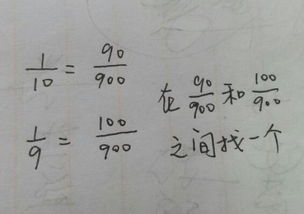 1/10 = 90/900
1/9 = 100/900
在 90/900 和 100/900
之间找一个